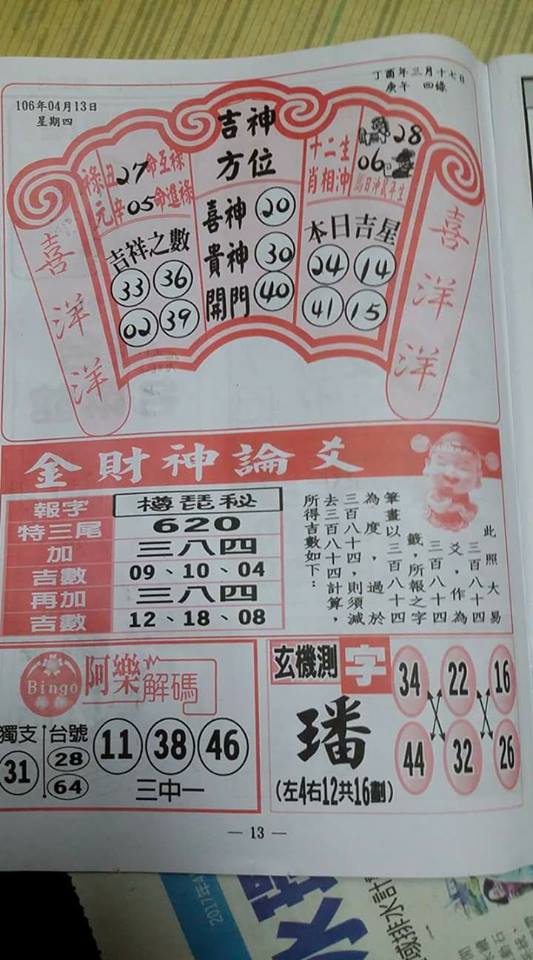 106年04月13日
星期四
丁酉年三月十七日
庚午 四綠
吉神
方位
喜神 20
貴神 30
開門 40
祿丑 27 命互祿
元辛 05 命進祿
吉祥之數
33 36
02 39
十二生
肖相沖
28
06
本日吉星
24 14
41 15
喜洋洋
喜洋洋
金財神論爻
報字 樽琵秘
特三尾 620
加 三八四
吉數 09、10、04
再加 三八四
吉數 12、18、08
此照大易
三百八十四
爻，作為
三百八十四
籤，所報之字
筆畫以三百八十四
為度，過於
三百八十四，則須減
去三百八十四計算，
所得吉數如下：
Bingo 阿樂解碼
獨支 31
台號 28 64
11 38 46
三中一
玄機測字
璠
(左4右12共16劃)
34 22 16
44 32 26
— 13 —